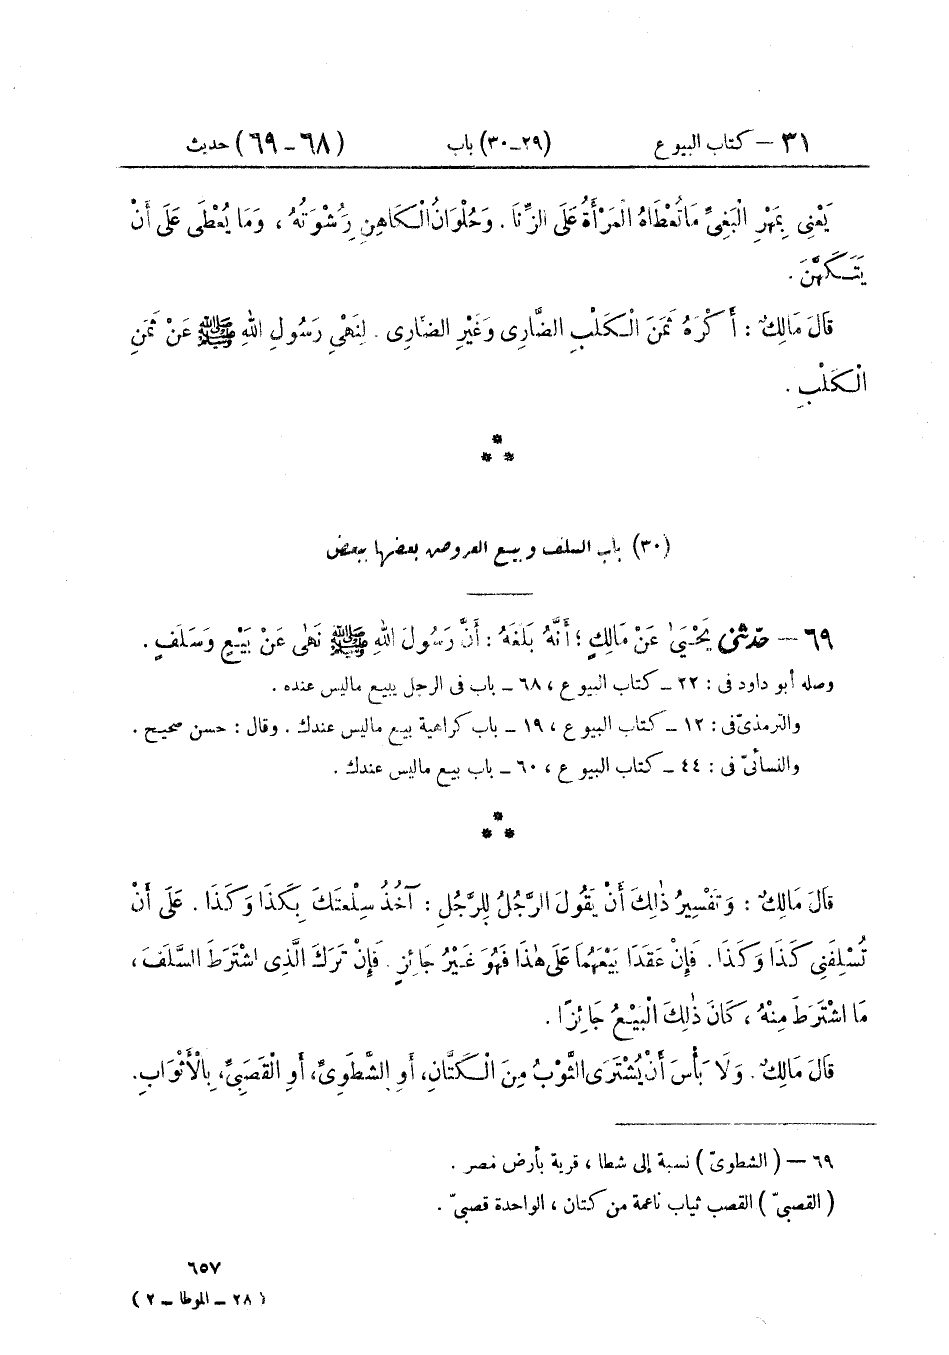 ٣١ – كتاب البيوع (٢٩–٣٠) باب (٦٨–٦٩) حديث
يَعْنِى بِمَهْرِ الْبَغِىِّ مَا تُعْطَاهُ الْمَرْأَةُ عَلَى الزِّنَا . وَحُلْوَانُ الْكَاهِنِ رِشْوَتُهُ ، وَمَا يُعْطَى عَلَى أَنْ
يَتَكَهَّنَ .
قَالَ مَالِكٌ : أَكْرَهُ ثَمَنَ الْكَلْبِ الضَّارِى وَغَيْرِ الضَّارِى . لِنَهْىِ رَسُولِ اللهِ ﷺ عَنْ ثَمَنِ
الْكَلْبِ .
(٣٠) باب السلف وبيع العروض بعضها ببعض
٦٩ – حدّثنى يَحْيَىٰ عَنْ مَالِكٍ ؛ أَنَّهُ بَلَغَهُ : أَنَّ رَسُولَ اللهِ ﷺ نَهَى عَنْ بَيْعٍ وَسَلَفٍ .
وصله أبو داود فى : ٢٢ – كتاب البيوع ، ٦٨ – باب فى الرجل يبيع ما ليس عنده .
والترمذىّ فى : ١٢ – كتاب البيوع ، ١٩ – باب كراهية بيع ما ليس عندك . وقال : حسن صحيح .
والنسائىّ فى : ٤٤ – كتاب البيوع ، ٦٠ – باب بيع ما ليس عندك .
قَالَ مَالِكٌ : وَتَفْسِيرُ ذٰلِكَ أَنْ يَقُولَ الرَّجُلُ لِلرَّجُلِ : آخُذُ سِلْعَتَكَ بِكَذَا وَكَذَا . عَلَى أَنْ
تُسْلِفَنِى كَذَا وَكَذَا . فَإِنْ عَقَدَا بَيْعَهُمَا عَلَى هٰذَا فَهُوَ غَيْرُ جَائِزٍ . فَإِنْ تَرَكَ الَّذِى اشْتَرَطَ السَّلَفَ ،
مَا اشْتَرَطَ مِنْهُ ، كَانَ ذٰلِكَ الْبَيْعُ جَائِزًا .
قَالَ مَالِكٌ . وَلَا بَأْسَ أَنْ يُشْتَرَى الثَّوْبُ مِنَ الْكَتَّانِ ، أَوِ الشَّطَوِىِّ ، أَوِ الْقَصَبِىِّ ، بِالْأَثْوَابِ .
٦٩ – ( الشطوىّ ) نسبة إلى شطا ، قرية بأرض مصر .
( القصبىّ ) القصب ثياب ناعمة من كتان ، الواحدة قصبىّ .
٦٥٧
( ٢٨ – الموطا – ٢ )